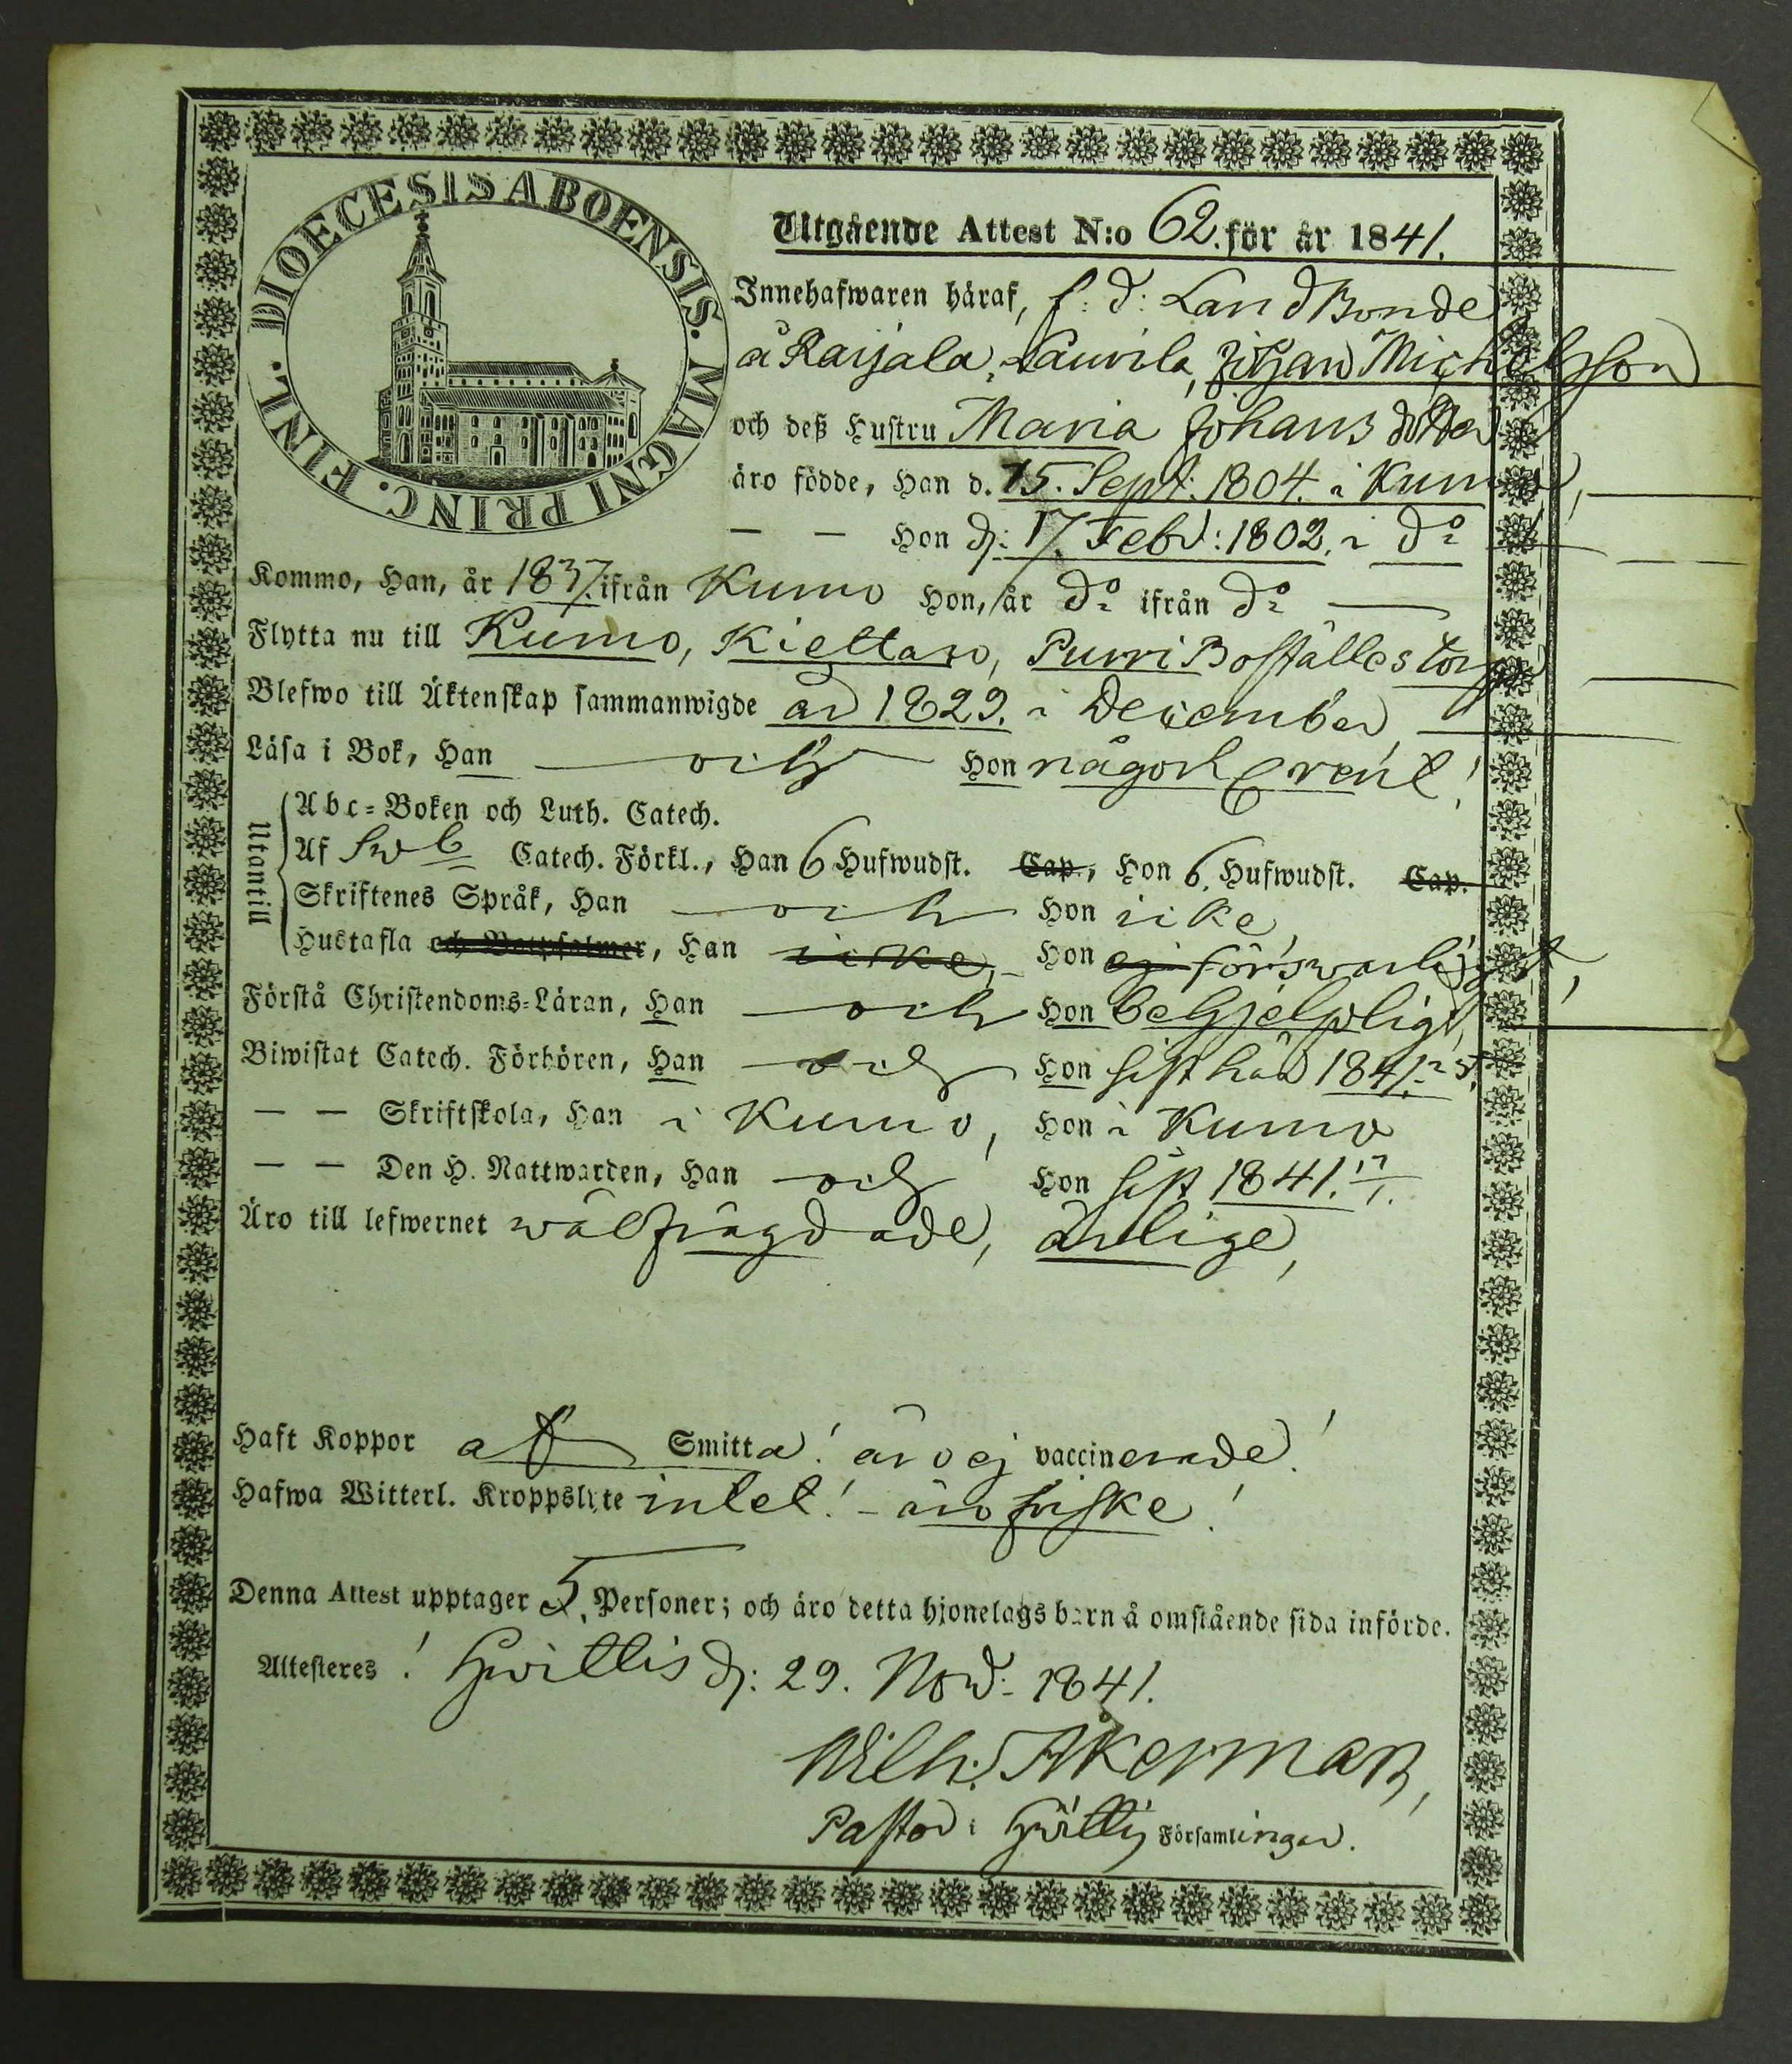 DIOECESIS ABOENSIS. MAGNI PRINC. FINL.
Utgående Attest N:o 62. för år 1841.
Innehafwaren häraf, f: d: LandBonde
å Raijala, Lauvila, Johan Michelsson
och deß Hustru Maria Johans dotter
äro födde, Han d. 15. Sept. 1804. i Kumo,
— — Hon d: 17. Febr: 1802, i do
Kommo, Han, år 1837. ifrån Kumo Hon, år do ifrån do —
Flytta nu till Kumo, Kiettare, Purri Boställes torp
Blefwo till Äktenskap sammanwigde år 1829. i December
Läsa i Bok, Han — och — Hon något rent!
Utantill
Abc-Boken och Luth. Catech.
Af Sw b Catech. Förkl., Han 6 Hufwudst. Cap., Hon 6. Hufwudst. Cap.
Skriftenes Språk, Han — och Hon icke,
Hustafla och Botpsalmer, Han icke, Hon ej försvarligast,
Förstå Christendoms-Läran, Han — och Hon behjelpligt,
Biwistat Catech. Förhören, Han — och Hon sist här 1841.
— — Skriftskola, Han i Kumo, Hon i Kumo
— — Den H. Nattwarden, Han — och Hon sist 1841. 17/1.
Äro till lefwernet wälfrägdade, ärlige,
Haft Koppor af Smitta! äro ej vaccinerade!
Hafwa Witterl. Kroppslyte intet! - äro friske!
Denna Attest upptager 5. Personer; och äro detta hjonelags barn å omstående sida införde.
Attesteres! Hwittis d: 29. Nov: 1841.
Wilh: Åkerman,
Pastor i Hwittis Församlingar.